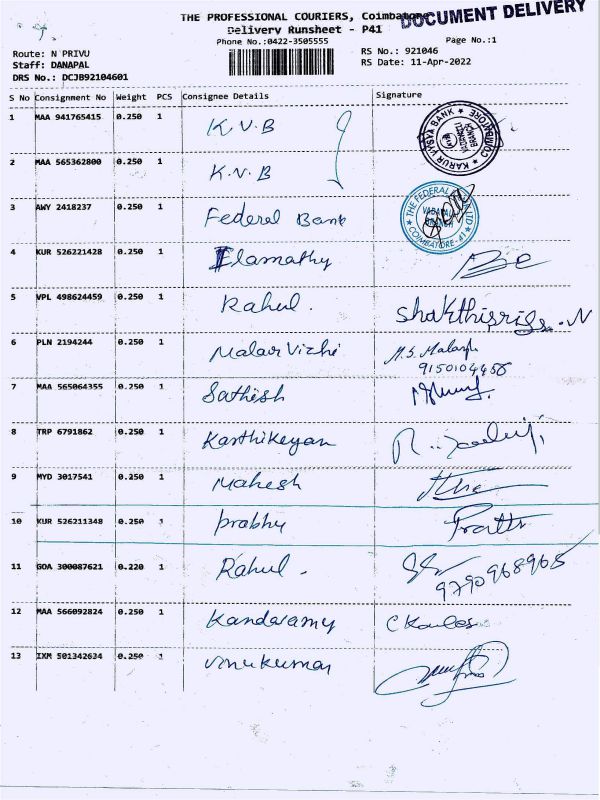 THE PROFESSIONAL COURIERS, Coimbatore
DOCUMENT DELIVERY
Delivery Runsheet - P41
Phone No.:0422-3505555
Page No.:1
Route: N PRIVU
RS No.: 921046
Staff: DANAPAL
RS Date: 11-Apr-2022
DRS No.: DCJB92104601
S No Consignment No Weight PCS Consignee Details Signature
1 MAA 941765415 0.250 1 K.V.B
KARUR VYSYA BANK COIMBATORE BRANCH
2 MAA 565362800 0.250 1 K.V.B
3 AWY 2418237 0.250 1 Federal Bank
THE FEDERAL LTD COIMBATORE-41
4 KUR 526221428 0.250 1 Elamathy
5 VPL 498624459 0.250 1 Rahul.
6 PLN 2194244 0.250 1 Malar Vizhi
9150104456
7 MAA 565064355 0.250 1 Sathish
8 TRP 6791862 0.250 1 Karthikeyan
9 MYD 3017541 0.250 1 Mahesh
10 KUR 526211348 0.250 1 prabhy
11 GOA 300087621 0.220 1 Rahul.
9790968965
12 MAA 566092824 0.250 1 Kandaramy
13 IXM 501342634 0.250 1 vinukumar